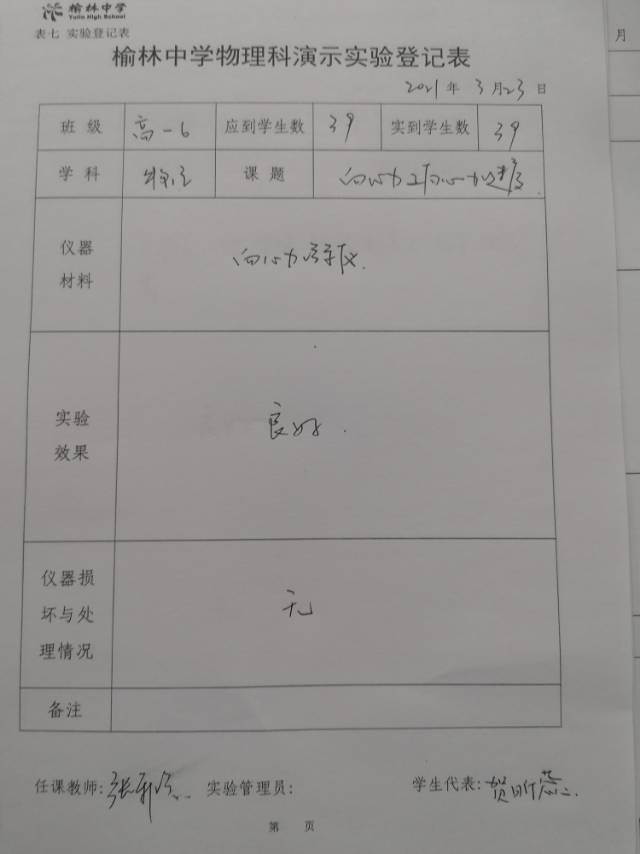 榆林中学
Yulin High School
表七 实验登记表
榆林中学物理科演示实验登记表
2021 年 3 月 23 日
班 级 高一6 应到学生数 39 实到学生数 39
学 科 物理 课 题 向心力 向心加速度
仪器
材料
向心力演示仪.
实验
效果
良好.
仪器损
坏与处
理情况
无
备注
任课教师: 张 实验管理员: 学生代表: 贺
第 页
月